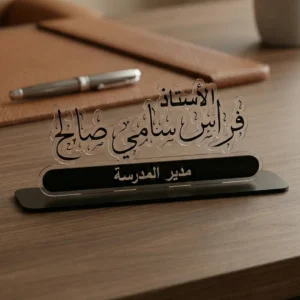 الأستاذ
فراس سامي صالح
مدير المدرسة